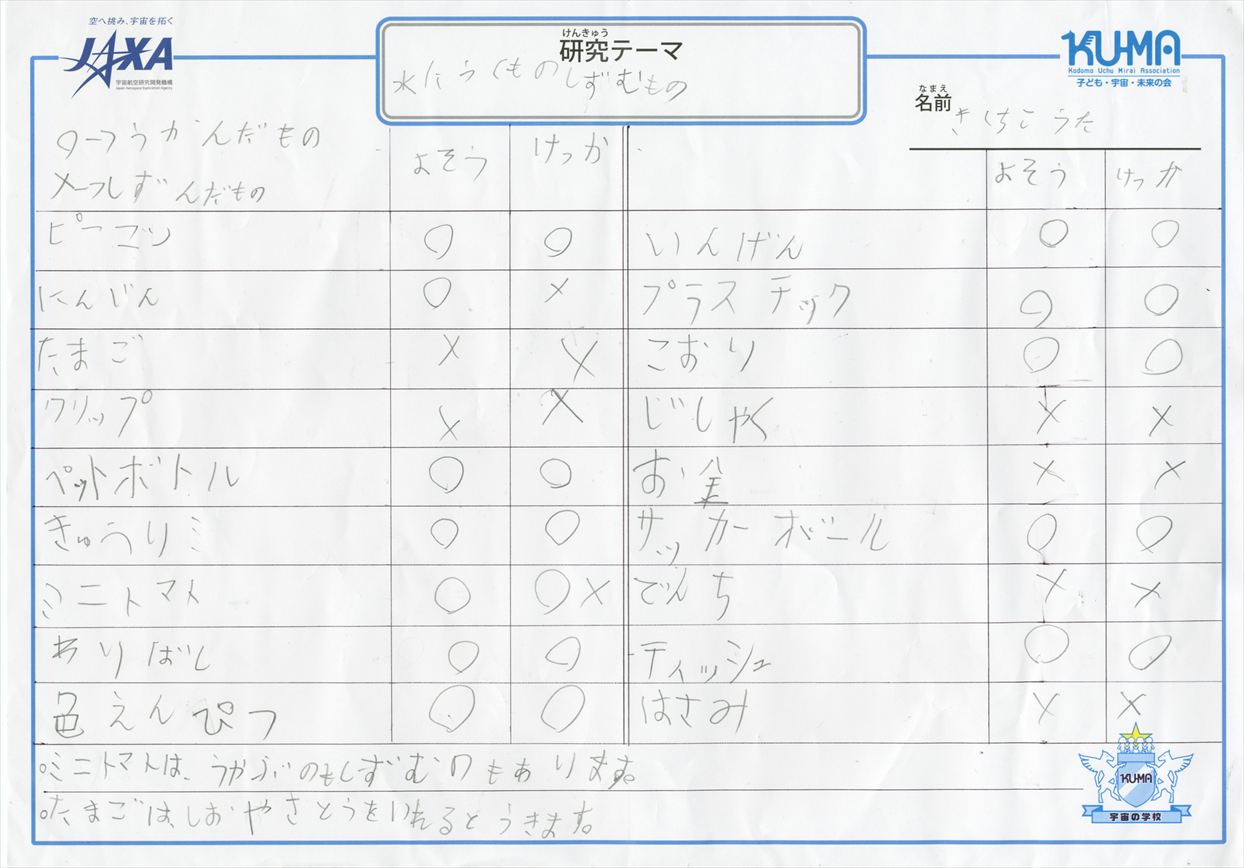 空へ挑み、宇宙を拓く
JAXA
宇宙航空研究開発機構
Japan Aerospace Exploration Agency
けんきゅう
研究テーマ
水にうくものしずむもの
KU-MA
Kodomo Uchu Mirai Association
子ども・宇宙・未来の会
なまえ
名前
○→うかんだもの よそう けっか よそう けっか
×→しずんだもの
ピーマン ○ ○ いんげん ○ ○
にんじん ○ × プラスチック ○ ○
たまご × × こおり ○ ○
クリップ × × じしゃく × ×
ペットボトル ○ ○ お金 × ×
きゅうり ○ ○ サッカーボール ○ ○
ミニトマト ○ ○× でんち × ×
わりばし ○ ○ ティッシュ ○ ○
色えんぴつ ○ ○ はさみ × ×
○ミニトマトは、うかぶのもしずむのもあります。
○たまごは、しおやさとうをいれるとうきます。
KU-MA
宇宙の学校